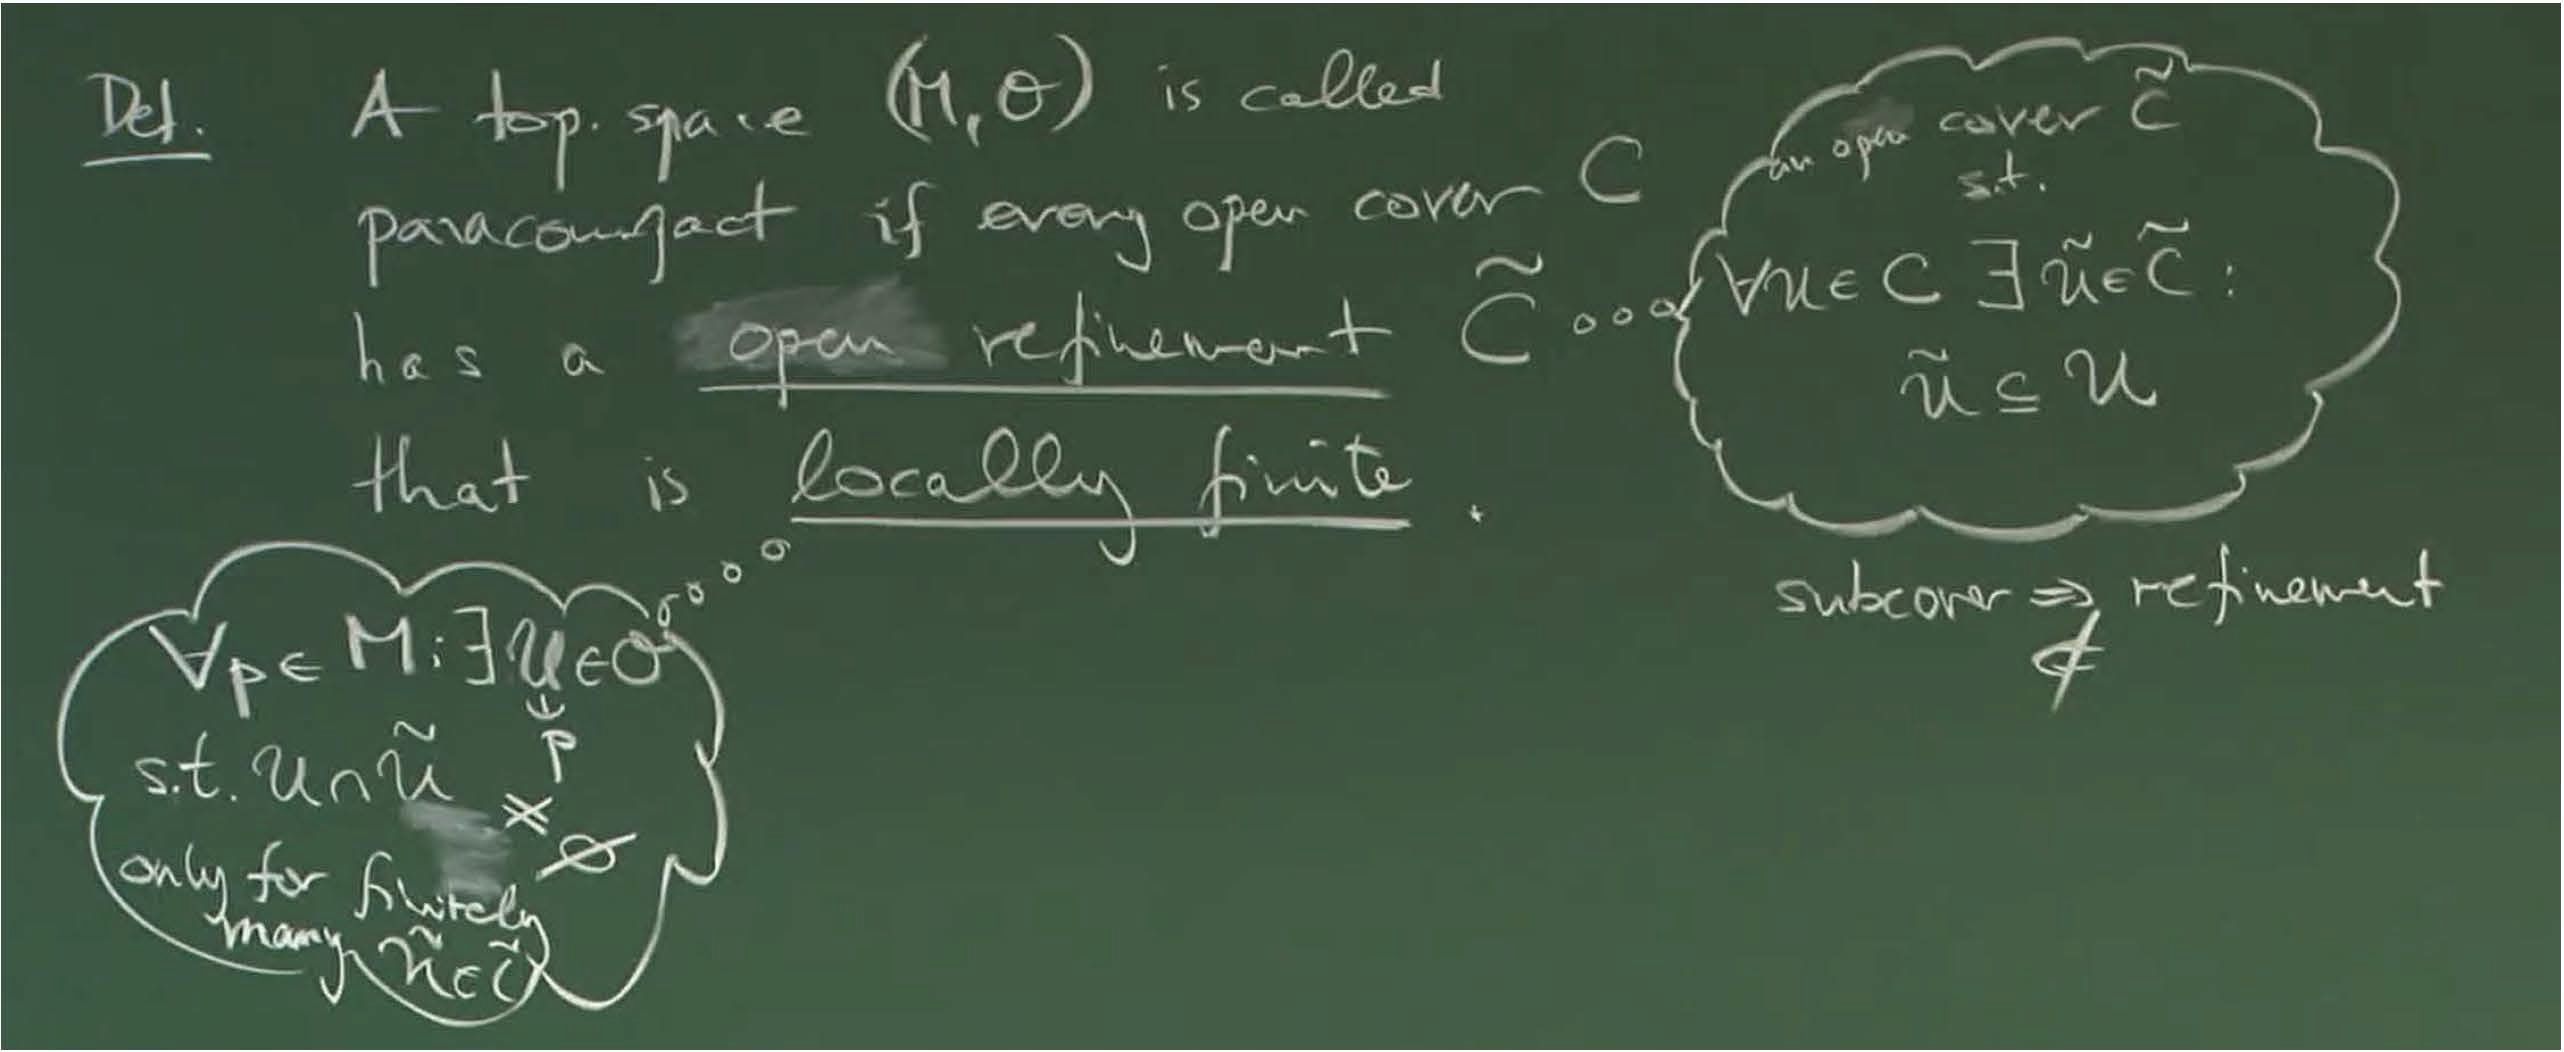 Def. A top. space (M, O) is called
paracompact if every open cover C
has a open refinement C̃
that is locally finite.
an open cover C̃
s.t.
∀U ∈ C ∃ Ũ ∈ C̃ :
Ũ ⊆ U
subcover ⇒ refinement
⇍
∀p ∈ M : ∃ U ∈ O
∋
p
s.t. U ∩ Ũ ≠ ∅
only for finitely
many Ũ ∈ C̃